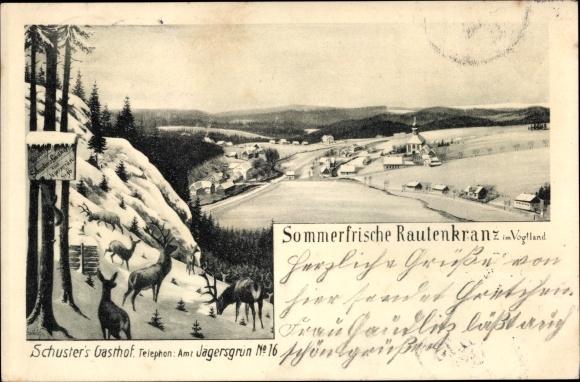 Sommerfrische Rautenkranz im Vogtland
Herzliche Grüße von
hier sendet Gretchen.
Frau Gaudlitz läßt auch
schön grüßen
Schuster's Gasthof. Telephon: Amt Jägersgrün No 16